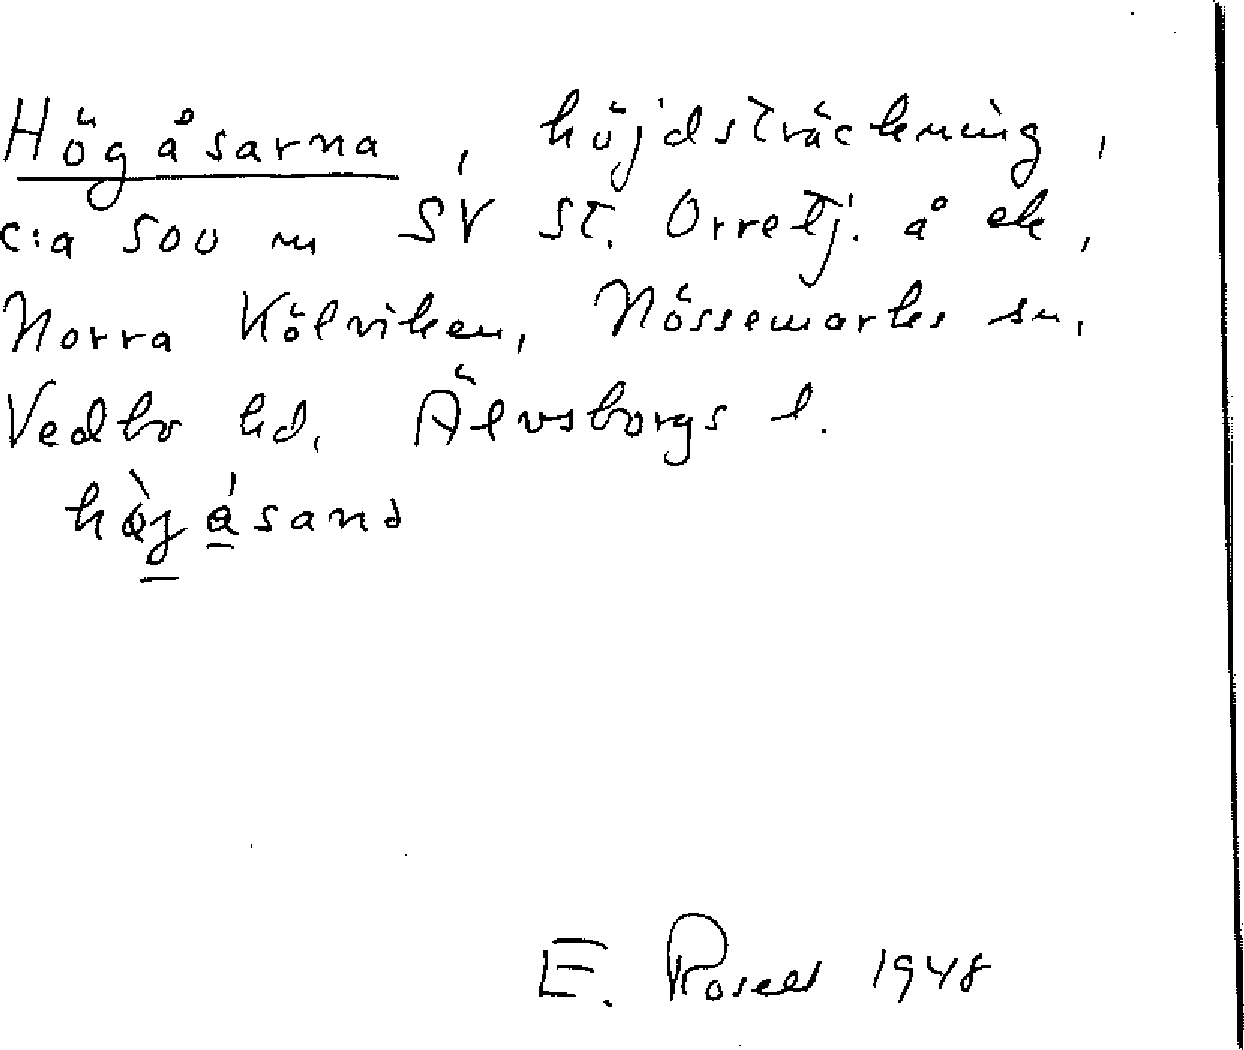 Högåsarna, höjdsträckning,
c:a 500 m SV St. Orretj. å ek,
Norra Kölviken, Nössemarks sn,
Vedbo hd, Älvsborgs l.
hö̀gásanə
E. Rosell 1948